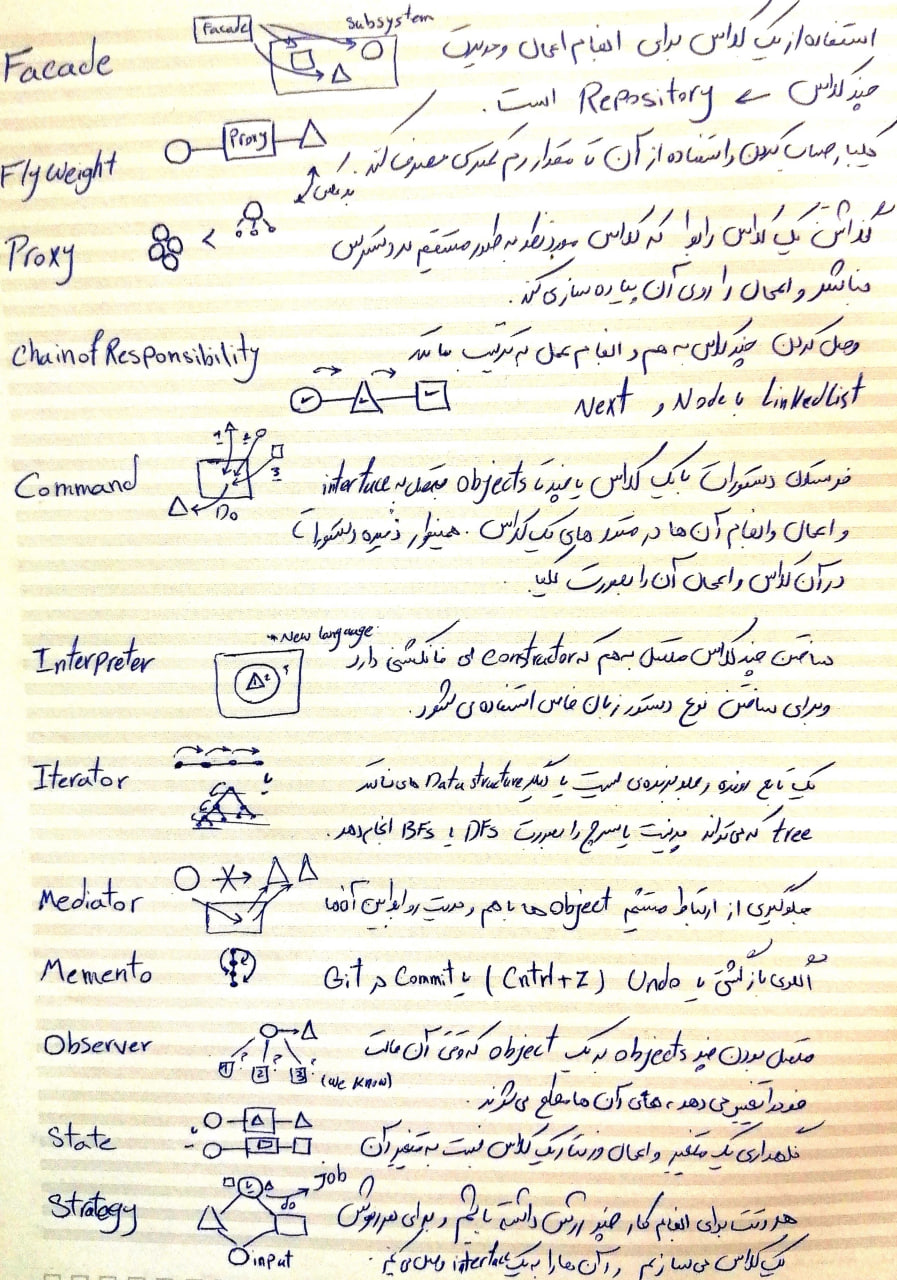 Facade
Facade
subsystem
استفاده از یک کلاس برای انجام اعمال و مدیریت
چند کلاس ← Repository است.
Fly Weight
Proxy
یکبار حساب کردن و استفاده از آن تا مقدار رم کمتری مصرف کند.
برعکس
Proxy
گذاشتن یک کلاس رابط که کلاس مورد نظر به طور مستقیم در دسترس
نباشد و اعمال را روی آن پیاده سازی کند.
Chain of Responsibility
وصل کردن چند کلاس به هم و انجام عمل به ترتیب مانند
LinkedList با Node و Next
Command
1 2 3
Do
فرستادن دستورات با یک کلاس یا چند تا objects متصل به interface
و اعمال و انجام آن ها در متد های یک کلاس. همینطور ذخیره دستورات
در آن کلاس و اعمال آن را بصورت یکجا
Interpreter
New language
ساختن چند کلاس متصل به هم که constructor ای فانکشنی دارد
و برای ساختن نوع دستور زبان خاص استفاده می شود.
Iterator
یک تابع رونده و جلو برنده ی لیست یا دیگر Data structure های مانند
tree که می تواند پرینت یا سرچ را بصورت DFs یا BFs انجام دهد.
Mediator
جلوگیری از ارتباط مستقیم object ها با هم و مدیریت روابط بین آنها
Memento
الگوی بازگشتی یا Undo (Cntrl+Z) یا Commit در Git
Observer
1 ? 2 ? 3 ?
(we know)
متصل بودن چند objects به یک object که وقتی آن حالت
خود را تغییر می دهد، همه ی آن ها مطلع می شوند.
State
نگهداری یک متغیر و اعمال و رفتار یک کلاس نسبت به متغیر آن
Strategy
job
do
input
هر وقت برای انجام کار چند روش داشته باشیم و برای هر روش
یک کلاس می سازیم و آن ها را به یک interface وصل می کنیم.